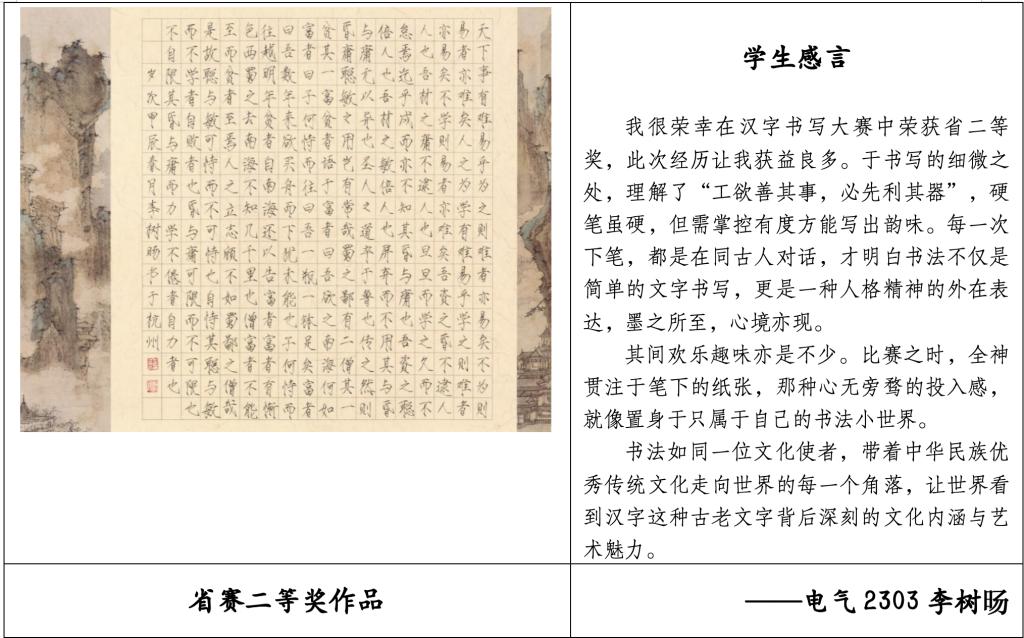 天下事有难易乎为之则难者亦易矣不为则
易者亦难矣人之为学有难易乎学之则难者
亦易矣不学则易者亦难矣吾资之昏不逮人
人也吾材之庸不逮人也旦旦而学之久而不
怠焉迄乎成而亦不知其昏与庸也吾资之聪
倍人也吾材之敏倍人也屏弃而不用其与昏
与庸无以异也圣人之道卒于鲁也传之然则
昏庸聪敏之用岂有常哉蜀之鄙有二僧其一
贫其一富贫者语于富者曰吾欲之南海何如
富者曰子何恃而往曰吾一瓶一钵足矣富者
曰吾数年来欲买舟而下犹未能也子何恃而
往越明年贫者自南海还以告富者富者有惭
色西蜀之去南海不知几千里也僧富者不能
至而贫者至焉人之立志顾不如蜀鄙之僧哉
是故聪与敏可恃而不可恃也自恃其聪与敏
而不学者自败者也昏与庸可限而不可限也
不自限其昏与庸而力学不倦者自力者也
岁次甲辰春月李树旸书于杭州
学生感言
我很荣幸在汉字书写大赛中荣获省二等
奖，此次经历让我获益良多。于书写的细微之
处，理解了“工欲善其事，必先利其器”，硬
笔虽硬，但需掌控有度方能写出韵味。每一次
下笔，都是在同古人对话，才明白书法不仅是
简单的文字书写，更是一种人格精神的外在表
达，墨之所至，心境亦现。
其间欢乐趣味亦是不少。比赛之时，全神
贯注于笔下的纸张，那种心无旁骛的投入感，
就像置身于只属于自己的书法小世界。
书法如同一位文化使者，带着中华民族优
秀传统文化走向世界的每一个角落，让世界看
到汉字这种古老文字背后深刻的文化内涵与艺
术魅力。
省赛二等奖作品
——电气2303 李树旸